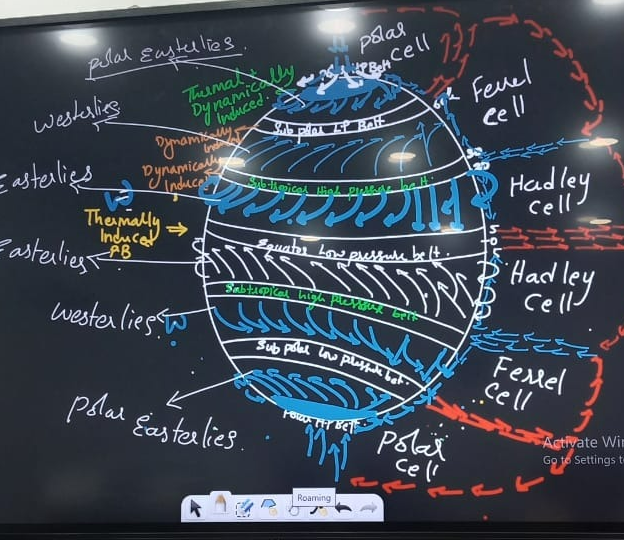 polar Easterlies
Polar
cell
Ferrel
cell
Thermal +
Dynamically
Induced
HP Belt
Westerlies
Sub polar LP Belt
Dynamically
Dynamically
Induce
Easterlies
W
Subtropical High Pressure belt
Hadley
cell
Thermally
Induced
PB
Equator Low pressure belt.
Easterlies
Hadley
cell
Subtropical high pressure belt
Westerlies
W
Sub polar low pressure belt.
Ferrel
cell
polar Easterlies
Polar HP Belt.
Polar
cell
Activate Win
Go to Settings t
Roaming